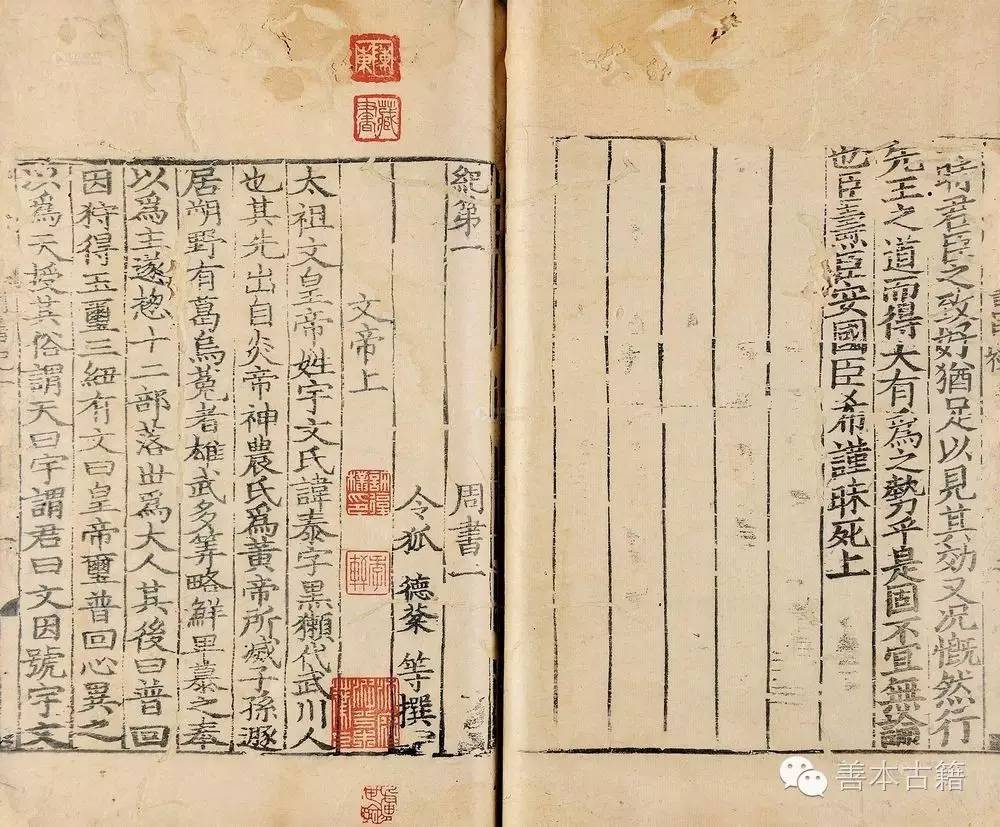 時君臣之致好猶足以見其効又况慨然行
先王之道而得大有爲之勢乎是固不宜無論
也臣燾臣安國臣希謹昧死上
紀第一 周書一
令狐 德棻 等撰
文帝上
太祖文皇帝姓宇文氏諱泰字黑獺代武川人
也其先出自炎帝神農氏爲黃帝所滅子孫遯
居朔野有葛烏菟者雄武多筭略鮮卑慕之奉
以爲主遂緫十二部落世爲大人其後曰普回
因狩得玉璽三紐有文曰皇帝璽普回心異之
以爲天授其俗謂天曰宇謂君曰文因號宇文
藏書
善本古籍